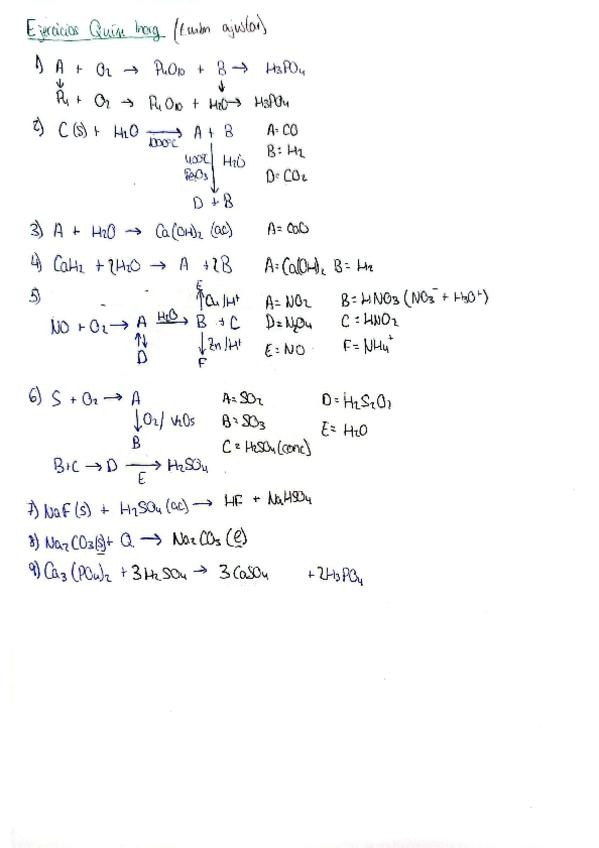 Ejercicios Quím Inorg (también ajustar)
1) A + O2 → P4O10 + B → H3PO4
↓ ↓
P4 + O2 → P4O10 + H2O → H3PO4
2) C(s) + H2O → A + B A = CO
1000ºC B = H2
400ºC Fe2O3 ↓ H2O D = CO2
D + B
3) A + H2O → Ca(OH)2 (ac) A = CaO
4) CaH2 + 2H2O → A + 2B A = Ca(OH)2 B = H2
5) E
↑ Cu/H+ A = NO2 B = HNO3 (NO3- + H3O+)
NO + O2 → A H2O → B + C D = N2O4 C = HNO2
⇅ ↓ Zn/H+ E = NO F = NH4+
D F
6) S + O2 → A A = SO2 D = H2S2O7
↓ O2/V2O5 B = SO3 E = H2O
B C = H2SO4 (conc)
B + C → D → H2SO4
E
7) NaF(s) + H2SO4 (ac) → HF + NaHSO4
8) Na2CO3(s) + Q → Na2CO3 (l)
9) Ca3(PO4)2 + 3H2SO4 → 3CaSO4 + 2H3PO4